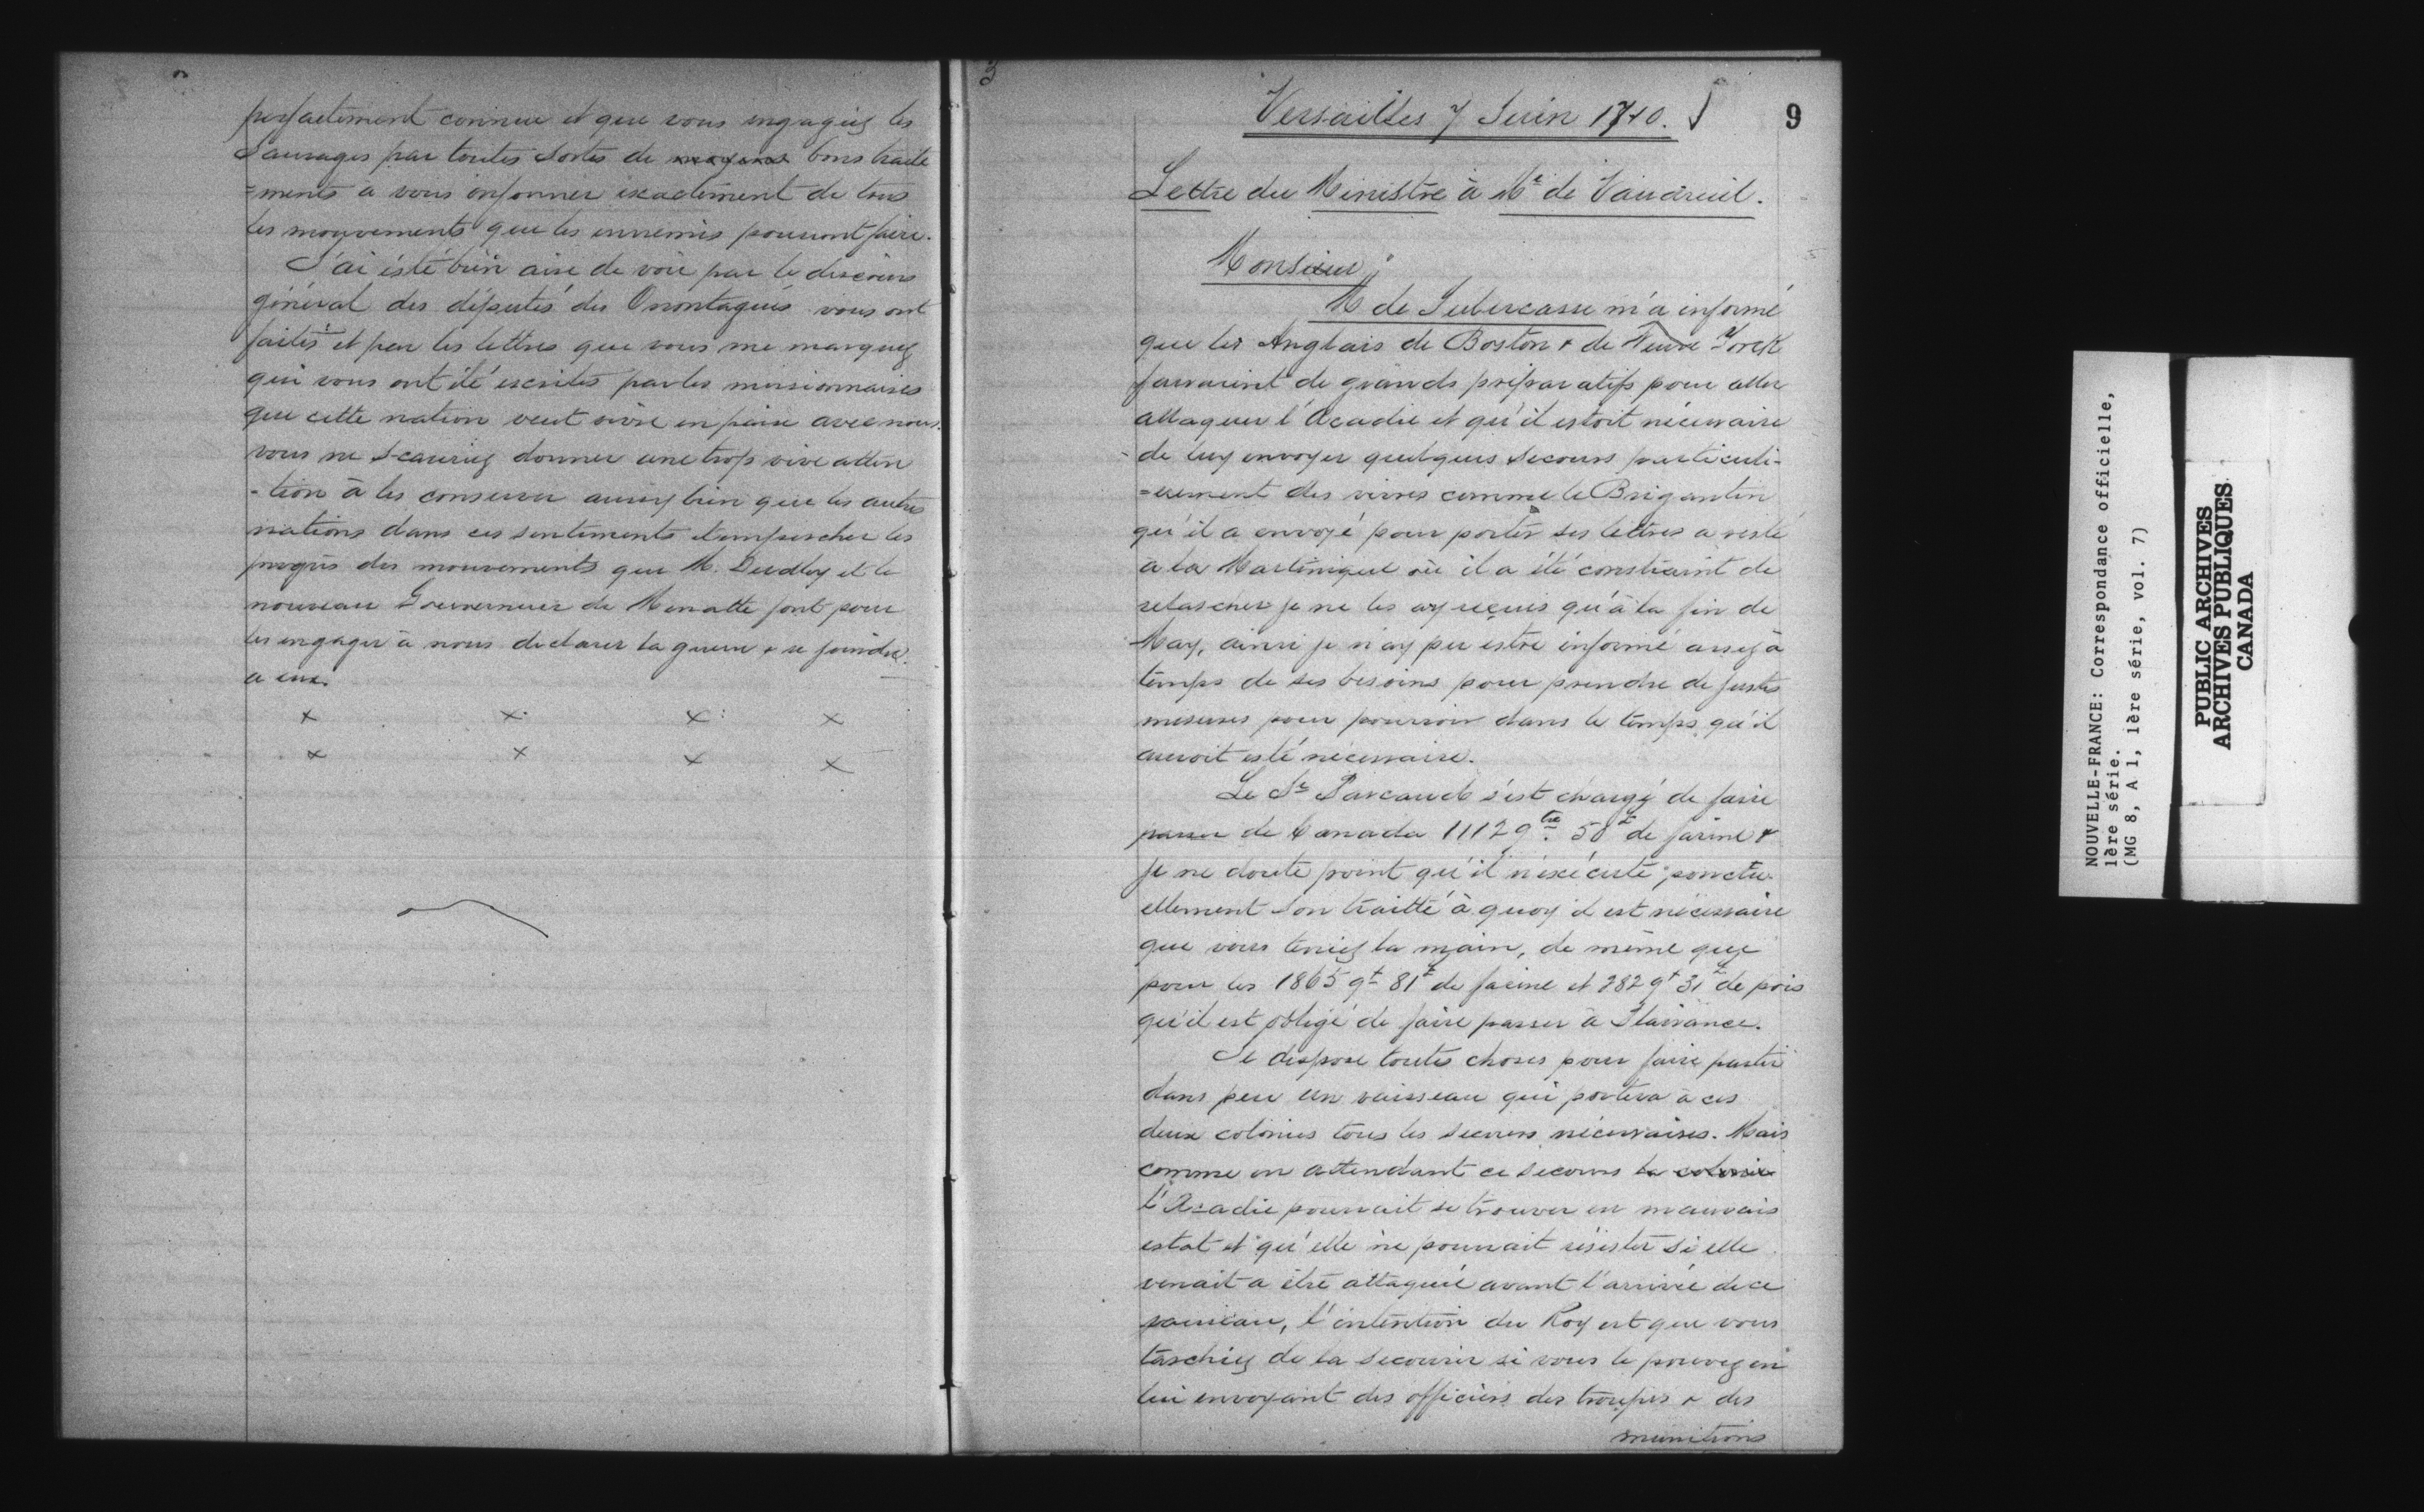 parfaitement connue et que vous engagiez les
Sauvages par toutes sortes de moyens bons traite
=ments à vous informer exactement de tous
les mouvements que les ennemis pourront faire.
J'ai ésté bien aise de voir par le discours
général des députés des Onontagués vous ont
faites et par les lettres que vous me marquez
qui vous ont été escrites par les missionnaires
que cette nation veut vivre en paix avec nous.
vous ne sçauriez donner une trop vive atten
-tion à les conserver aussy bien que les autres
nations dans ces sentiments et empescher les
progrès des mouvements que M. Dudley et le
nouveau Gouverneur de Menatte font pour
les engager à nous déclarer la guerre & se joindre
a eux.
x x x x
x x x x
3
Versailles 7 Juin 1710.
9
Lettre du Ministre à Mr de Vaudreuil.
Monsieur,
M de Subercasse m'a informé
que les Anglais de Boston & de Neuve Yorck
faisaient de grands préparatifs pour aller
attaquer l'Acadie et qu'il estoit nécessaire
de luy envoyer quelques secours particuli-
=erement des vivres comme le Brigantin
qu'il a envoyé pour porter ses lettres a resté
à la Martinique où il a été constraint de
relascher je ne les ay reçeus qu'à la fin de
May, ainsi je n'ay peu estre informé assez à
temps de ses besoins pour prendre de justes
mesures pour pourvoir dans le temps qu'il
auroit esté nécessaire.
Le Sr Pascaud s'est chargé de faire
passer de Canada 1112 qtx 50# de farine &
je ne doute point qu'il n'exécute ponctu-
ellement son traitté à quoy il est nécessaire
que vous teniez la main, de même que
pour les 1865 qt 81# de farine et 282 qt 31# de pois
qu'il est obligé de faire passer à Plaisance.
Je dispose toutes choses pour faire partir
dans peu un vaisseau qui portera à ces
deux colonies tous les secours nécessaires. Mais
comme en attendant ce secours la colonie
l'Acadie pourrait se trouver en mauvais
estat et qu'elle ne pourrait résister si elle
venait a être attaquée avant l'arrivée de ce
vaisseau, l'intention du Roy est que vous
taschiez de la secourir si vous le pouvez en
lui envoyant des officiers des troupes & des
munitions
NOUVELLE-FRANCE: Correspondance officielle,
1ère série.
(MG 8, A 1, 1ère série, vol. 7)
PUBLIC ARCHIVES
ARCHIVES PUBLIQUES
CANADA